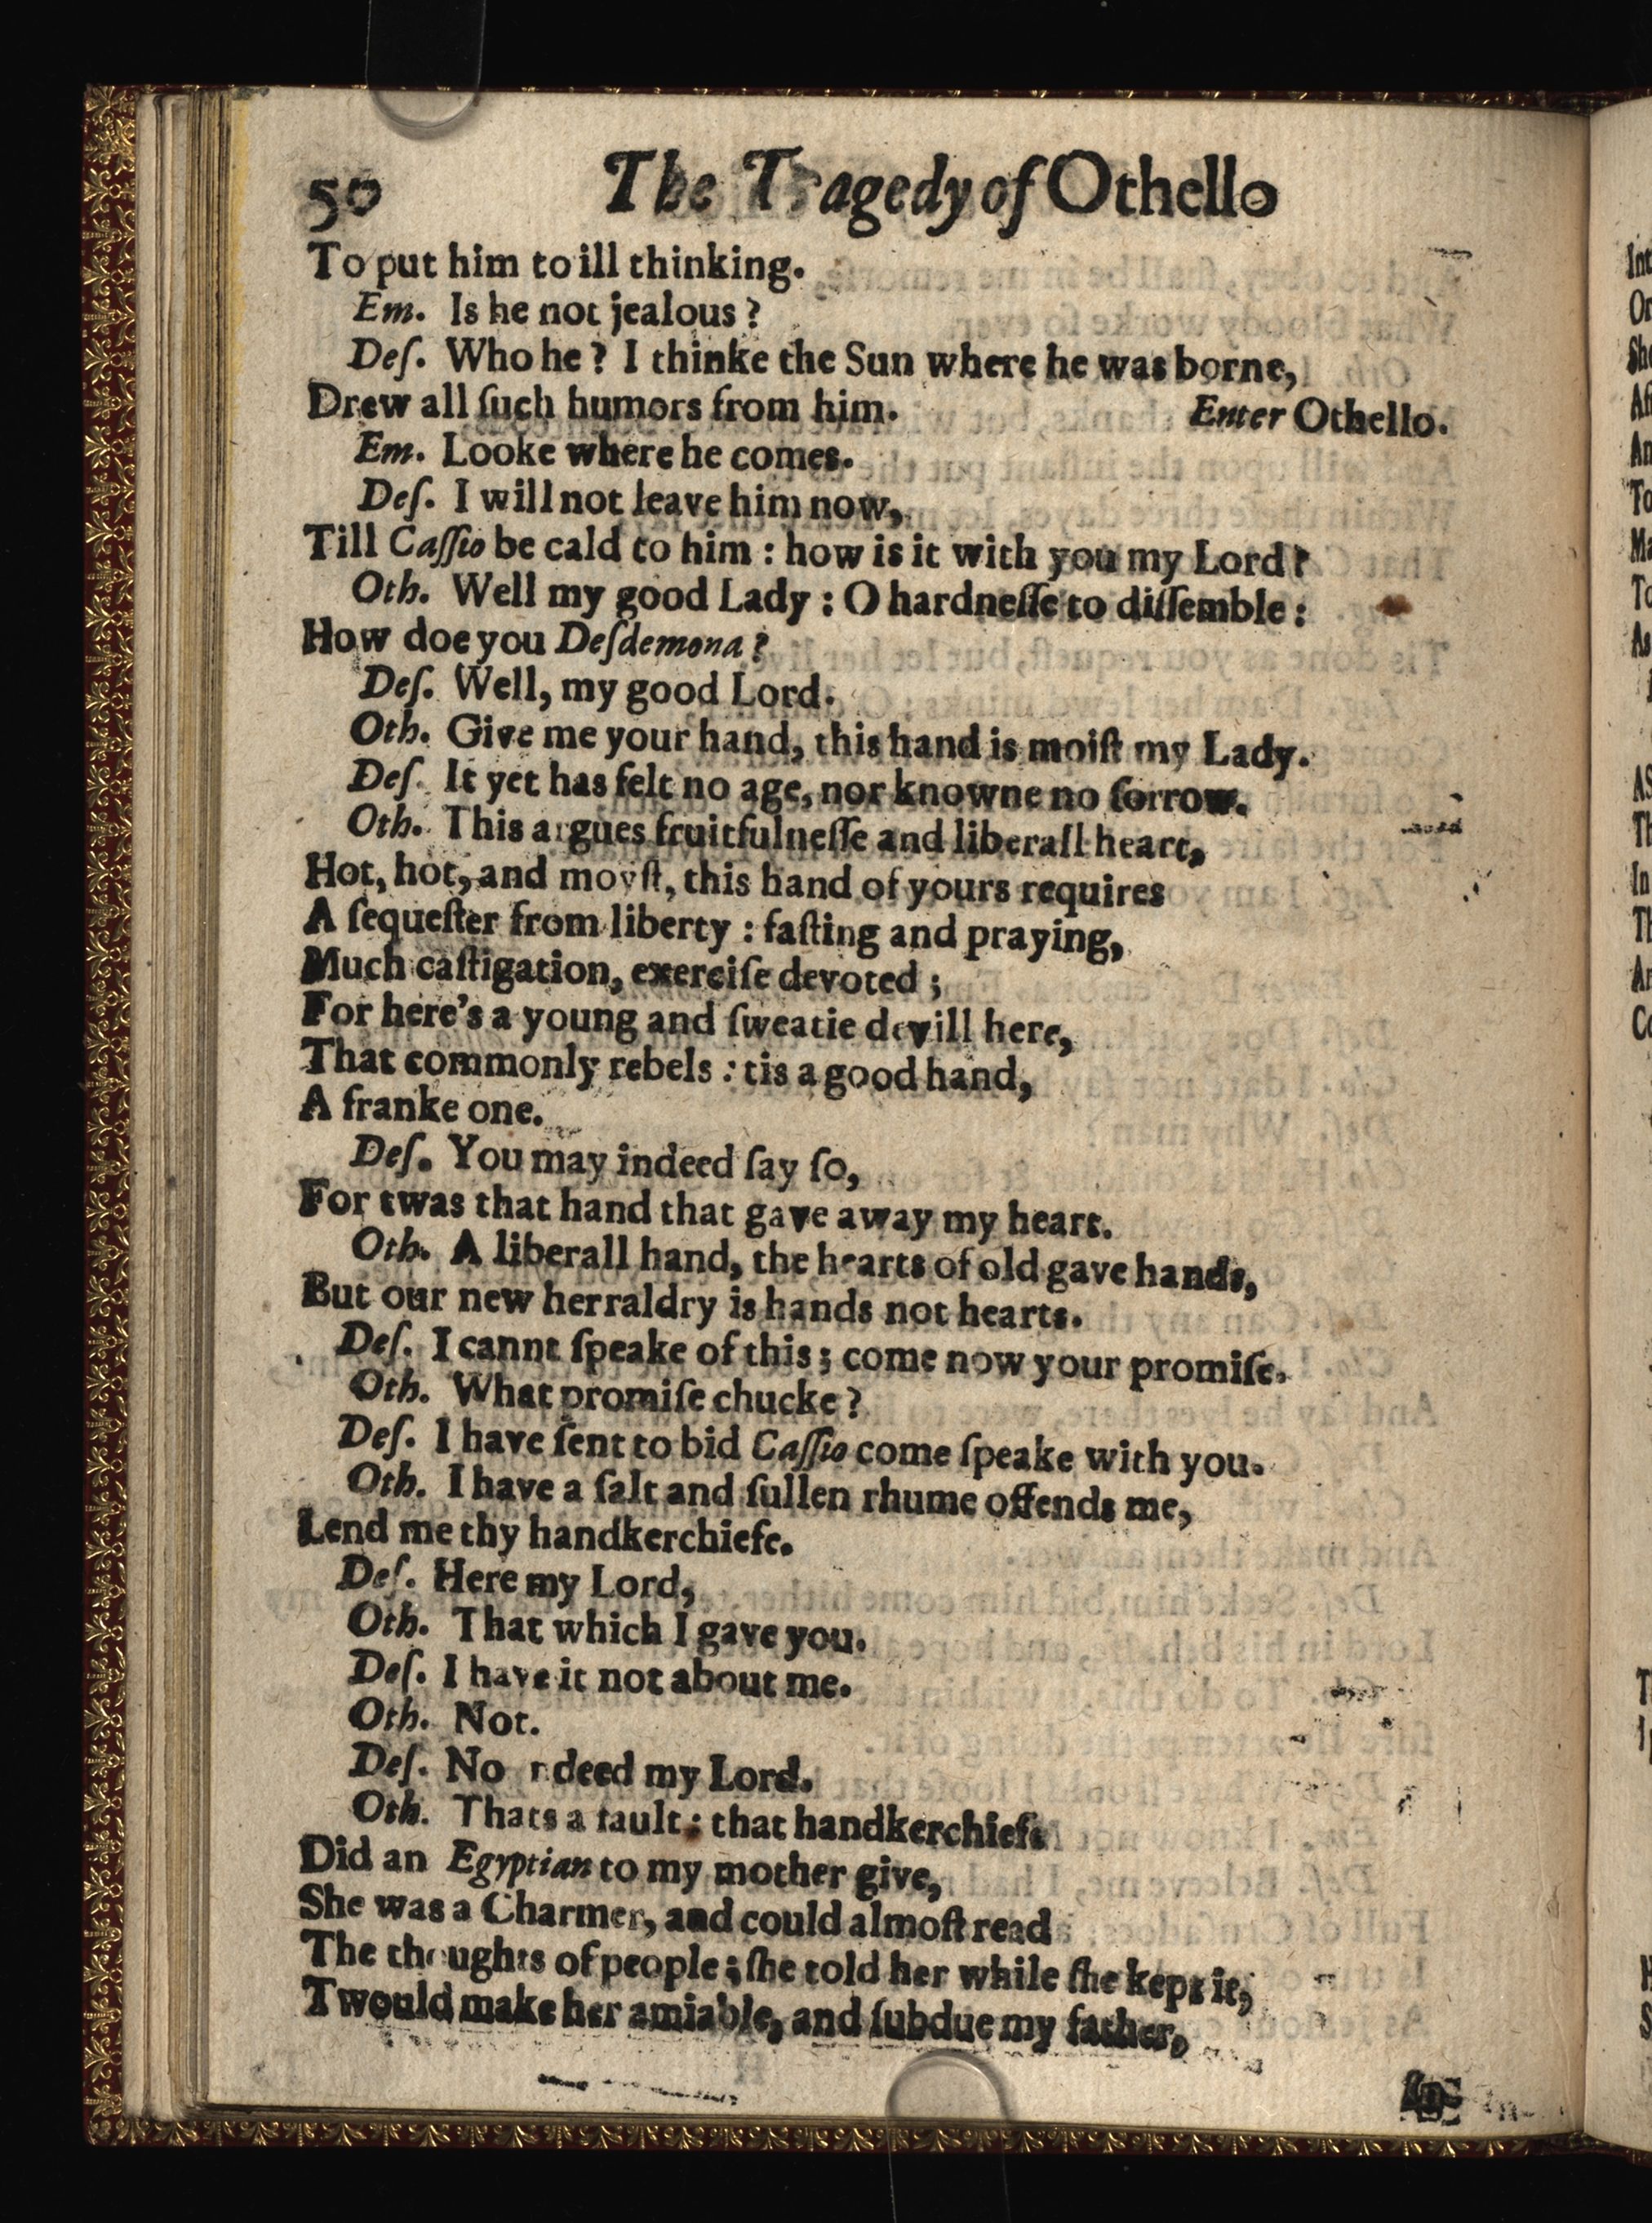 50 The Tragedy of Othello
To put him to ill thinking.
Em. Is he not jealous?
Deſ. Who he? I thinke the Sun where he was borne,
Drew all ſuch humors from him. Enter Othello.
Em. Looke where he comes.
Deſ. I will not leave him now,
Till Caſſio be cald to him: how is it with you my Lord?
Oth. Well my good Lady: O hardneſſe to diſſemble:
How doe you Deſdemona?
Deſ. Well, my good Lord.
Oth. Give me your hand, this hand is moiſt my Lady.
Deſ. It yet has felt no age, nor knowne no ſorrow.
Oth. This argues fruitfulneſſe and liberall heart,
Hot, hot, and moyſt, this hand of yours requires
A ſequeſter from liberty: faſting and praying,
Much caſtigation, exerciſe devoted;
For here's a young and ſweatie devill here,
That commonly rebels: tis a good hand,
A franke one.
Deſ. You may indeed ſay ſo,
For twas that hand that gave away my heart.
Oth. A liberall hand, the hearts of old gave hands,
But our new herraldry is hands not hearts.
Deſ. I cannt ſpeake of this; come now your promiſe.
Oth. What promiſe chucke?
Deſ. I have ſent to bid Caſſio come ſpeake with you.
Oth. I have a ſalt and ſullen rhume offends me,
Lend me thy handkerchiefe.
Deſ. Here my Lord,
Oth. That which I gave you.
Deſ. I have it not about me.
Oth. Not.
Deſ. No ndeed my Lord.
Oth. Thats a fault: that handkerchiefe
Did an Egyptian to my mother give,
She was a Charmer, and could almoſt read
The thoughts of people; ſhe told her while ſhe kept it,
Twould make her amiable, and ſubdue my father,